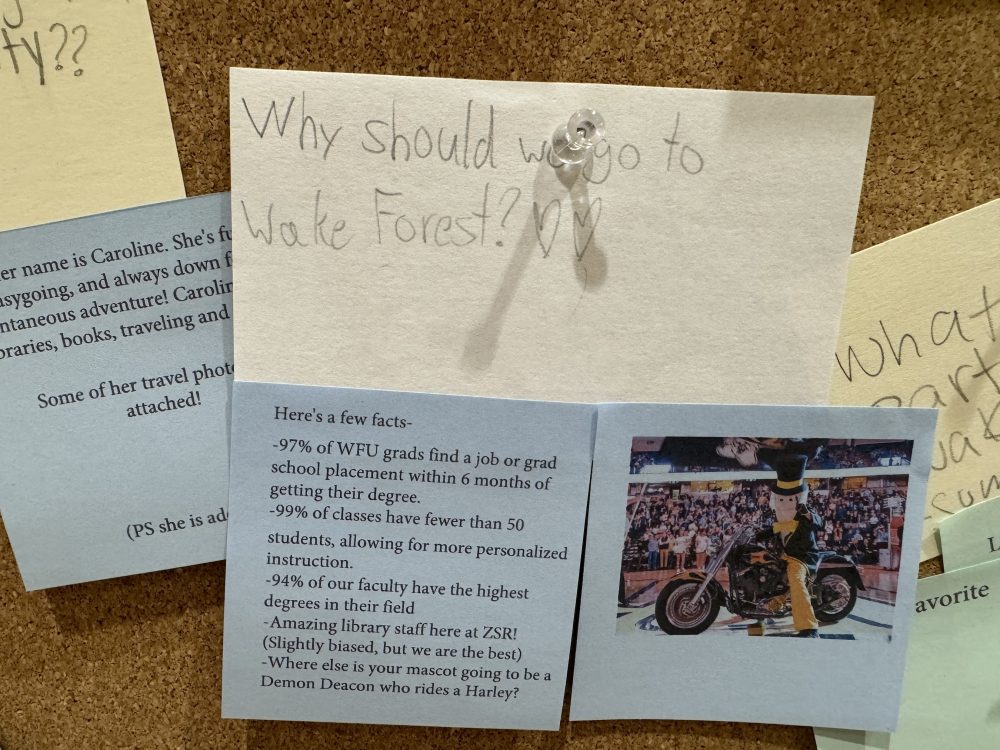 ty??
Why should we go to
Wake Forest? ♡♡
er name is Caroline. She's fu
asygoing, and always down f
ntaneous adventure! Carolin
braries, books, traveling and
Some of her travel phot
attached!
(PS she is ad
Here's a few facts-
-97% of WFU grads find a job or grad
school placement within 6 months of
getting their degree.
-99% of classes have fewer than 50
students, allowing for more personalized
instruction.
-94% of our faculty have the highest
degrees in their field
-Amazing library staff here at ZSR!
(Slightly biased, but we are the best)
-Where else is your mascot going to be a
Demon Deacon who rides a Harley?
what
part
wak
som
L
avorite